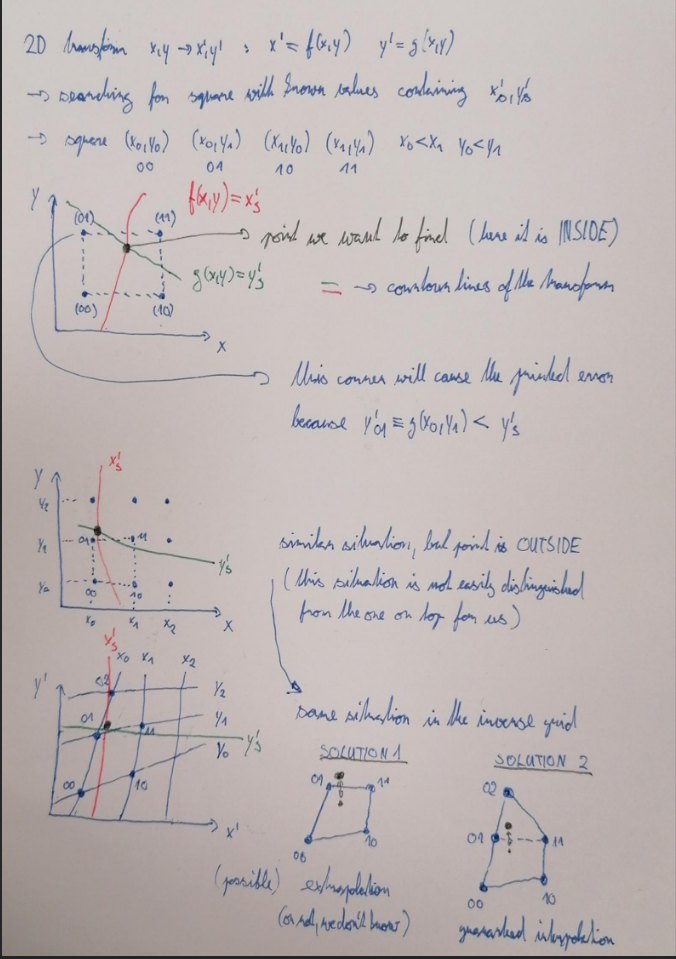 2D transform x,y → x',y' : x' = f(x,y) y' = g(x,y)
→ searching for square with known values containing x's, y's
→ square (x0,y0) (x0,y1) (x1,y0) (x1,y1) x0<x1 y0<y1
00 01 10 11
Y
f(x,y) = x's
(01) (11)
→ point we want to find (here it is INSIDE)
g(x,y)=y's
= → countour lines of the transform
(00) (10)
X
→ this corner will cause the printed error
because y'01 ≡ g(x0,y1) < y's
Y
x's
y2
y1
01 11
y's
y0
00 10
x0 x1 x2 X
similar situation, but point is OUTSIDE
(this situation is not easily distinguished
from the one on top for us)
x's
x0 x1 x2
Y'
02
y2
01 11
y1
y's
y0
00 10
X'
same situation in the inverse grid
SOLUTION 1
01 11
00 10
(possible) extrapolation
(or not, we don't know)
SOLUTION 2
02
01 11
00 10
guaranteed interpolation